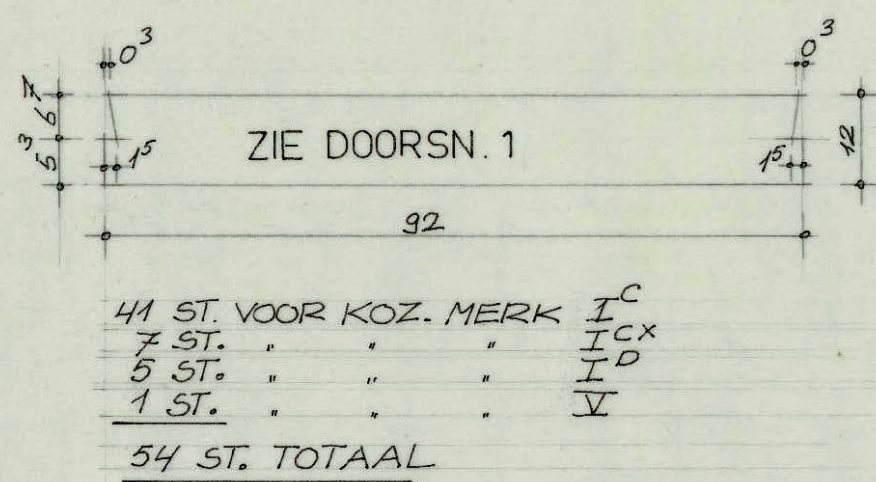 0³ 0³
6⁷
5³
ZIE DOORSN. 1
1⁵ 1⁵
12
92
41 ST. VOOR KOZ. MERK I^C
7 ST. " " " I^CX
5 ST. " " " I^D
1 ST. " " " V
54 ST. TOTAAL